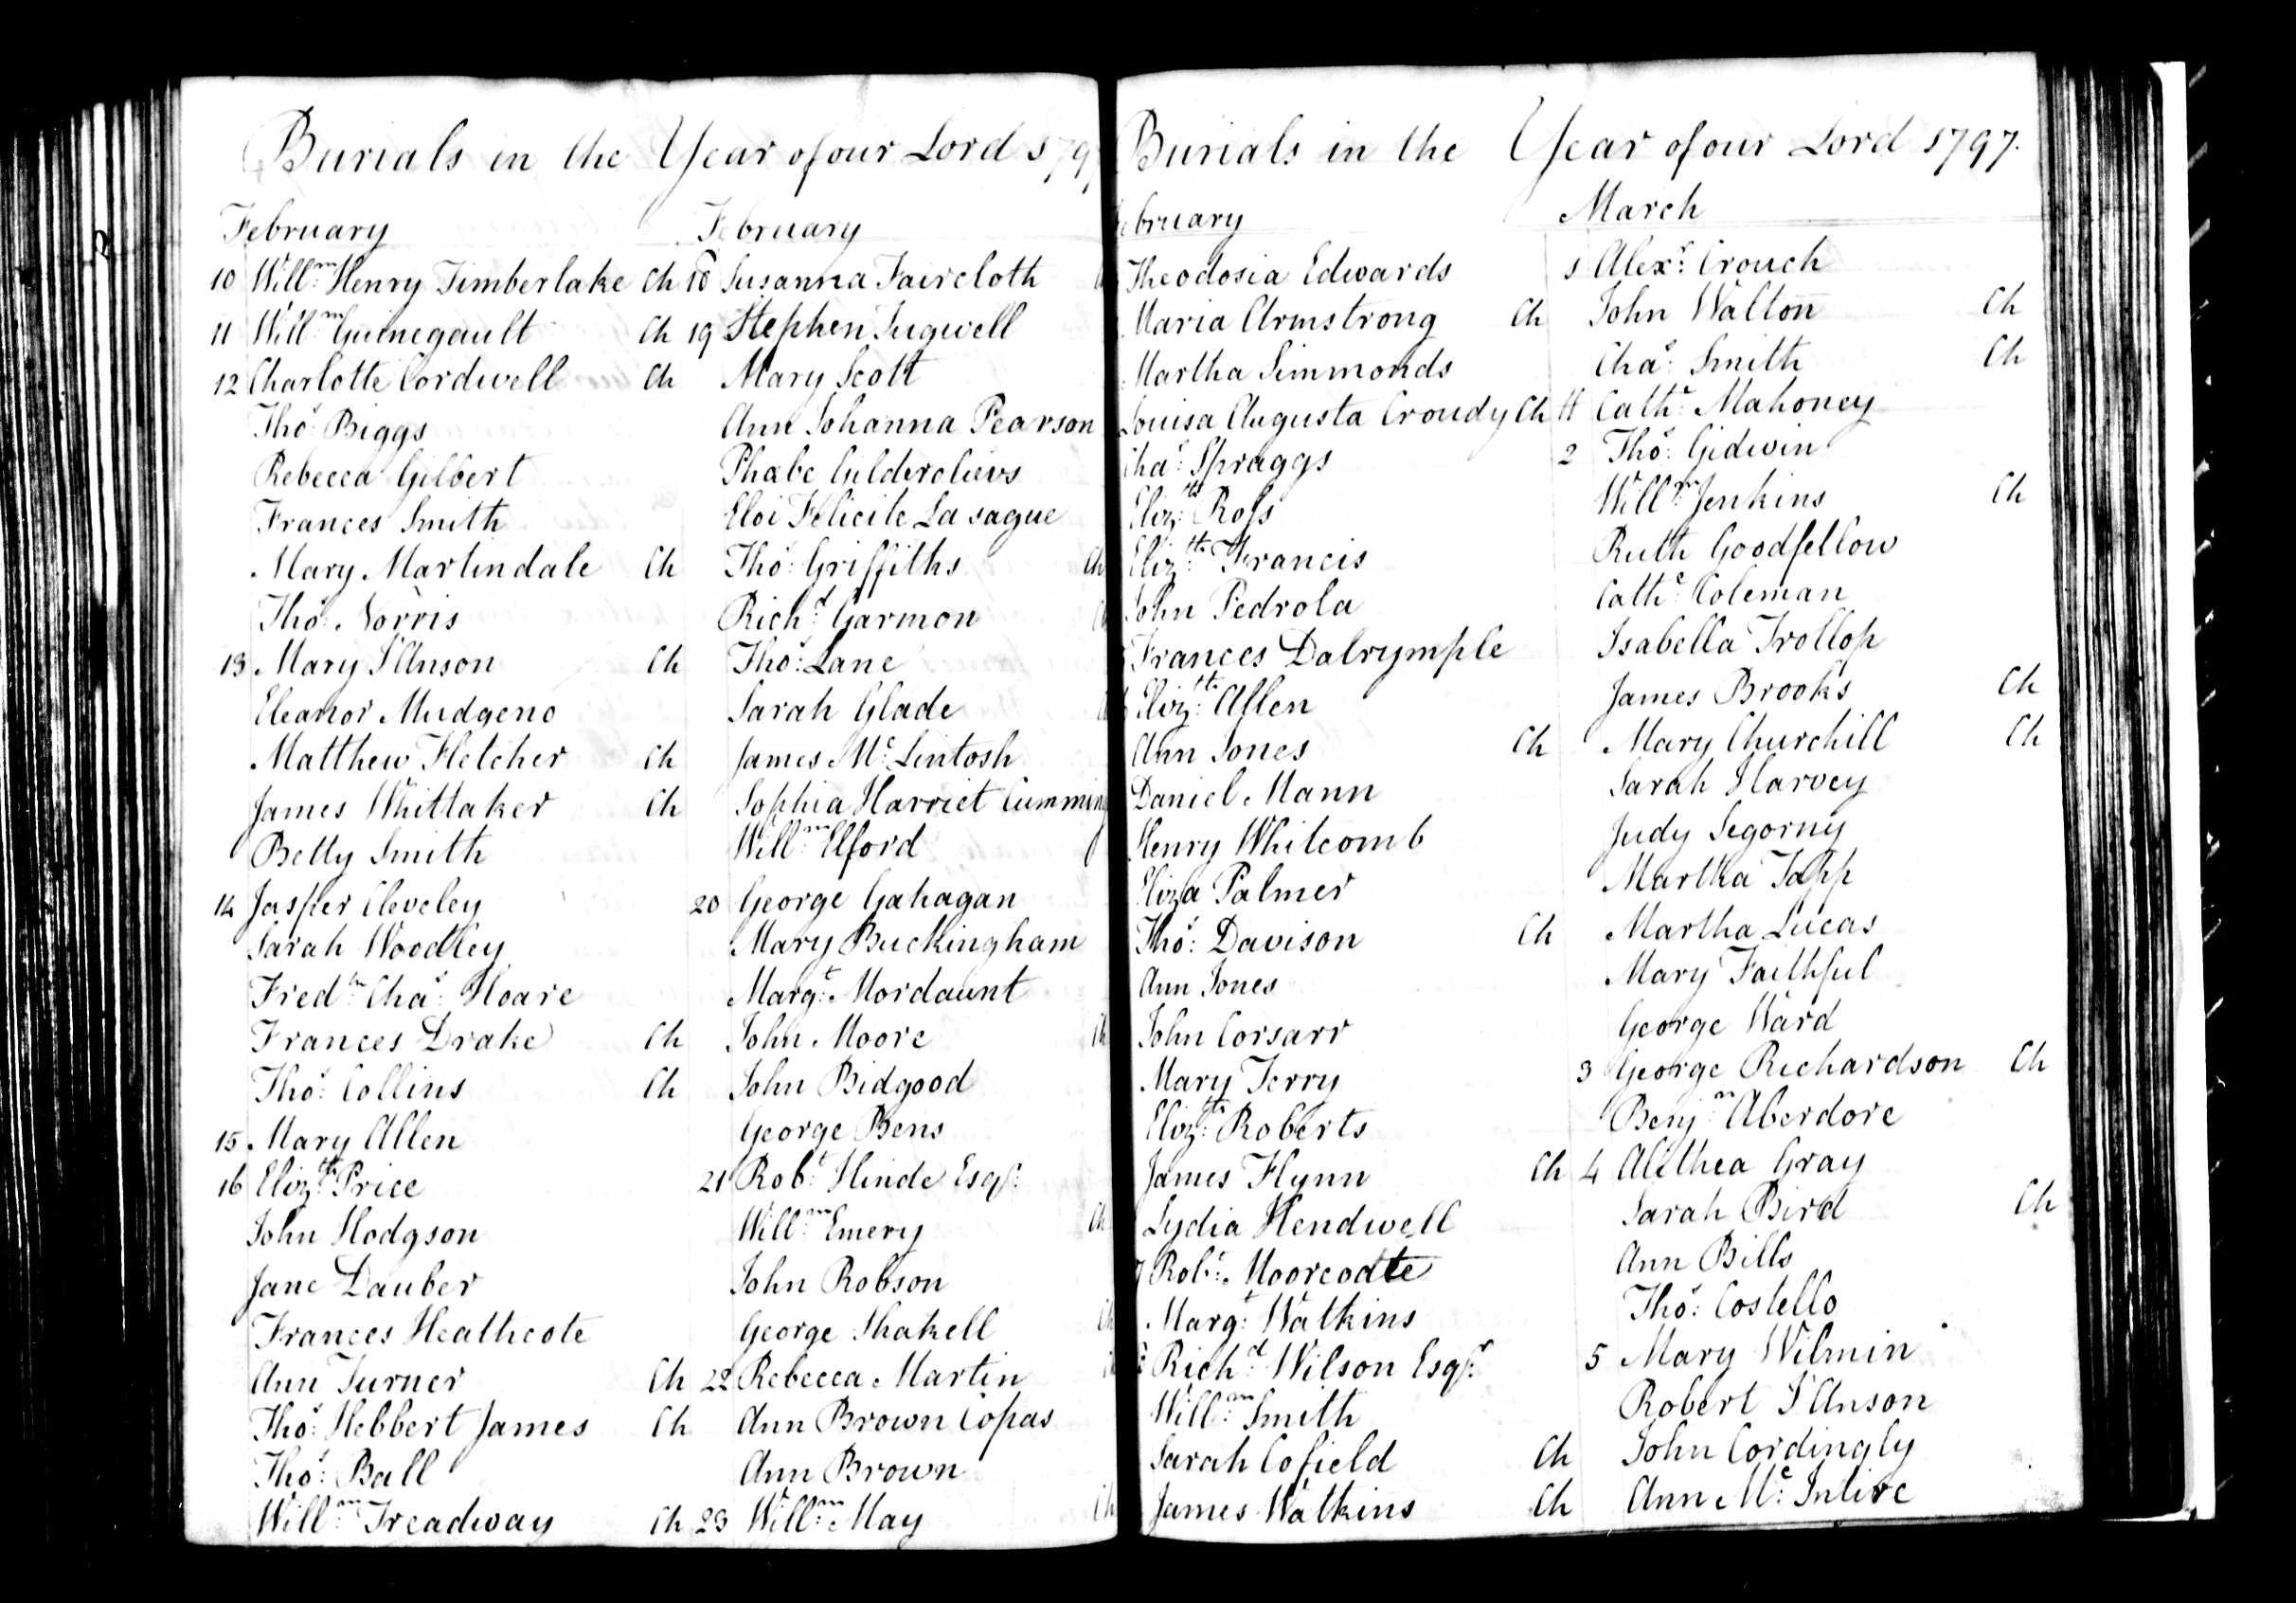 Burials in the Year of our Lord 179
February
10 Will.m Henry Timberlake Ch
11 Will.m Guinegault Ch
12 Charlotte Cordwell Ch
Tho.s Biggs
Rebecca Gilbert
Frances Smith
Mary Martindale Ch
Tho.s Norris
13 Mary I'Anson Ch
Eleanor Mudgeno
Matthew Fletcher Ch
James Whittaker Ch
Betty Smith
14 Jasper Cleveley
Sarah Woodley
Fred.k Cha.s Hoare
Frances Drake Ch
Tho.s Collins Ch
15 Mary Allen
16 Eliz.th Price
John Hodgson
Jane Dauber
Frances Heathcote
Ann Turner Ch
Tho.s Hebbert James Ch
Tho.s Ball
Will.m Treadway Ch
February
18 Susanna Faircloth
19 Stephen Tugwell
Mary Scott
Ann Johanna Pearson
Phœbe Gilderolievs
Eloi Felicite La sague
Tho.s Griffiths Ch
Rich.d Garmon
Tho.s Lane
Sarah Glade
James Mc Lintosh
Sophia Harriet Cumming
Will.m Elford
20 George Gahagan
Mary Buckingham
Marg.t Mordaunt
John Moore Ch
John Bidgood
George Bens
21 Rob.t Hinde Esq.r
Will.m Emery Ch
John Robson
George Shakell Ch
22 Rebecca Martin
Ann Brown Copas
Ann Brown
23 Will.m May Ch
Burials in the Year of our Lord 1797.
ebruary
Theodosia Edwards
Maria Armstrong Ch
Martha Simmonds
Louisa Augusta Croudy Ch
Cha.s Spraggs
Eliz.th Ross
Eliz.th Francis
John Pedrola
Frances Dalrymple
Eliz.th Allen
Ann Jones Ch
Daniel Mann
Henry Whitcomb
Eliza Palmer
Tho.s Davison Ch
Ann Jones
John Corsarr
Mary Terry
Eliz.th Roberts
James Flynn Ch
Lydia Hendwell
7 Rob.t Moorcodte
Marg.t Watkins
Rich.d Wilson Esq.r
Will.m Smith
Sarah Cofield Ch
James Watkins Ch
March
1 Alex.r Crouch
John Walton Ch
Cha.s Smith Ch
Cath.e Mahoney
2 Tho.s Gidwin
Will.m Jenkins Ch
Ruth Goodfellow
Cath.e Coleman
Isabella Trollop
James Brooks Ch
Mary Churchill Ch
Sarah Harvey
Judy Segorny
Martha Tapp
Martha Lucas
Mary Faithful
George Ward
3 George Richardson Ch
Benj.n Aberdore
4 Alethea Gray
Sarah Bird Ch
Ann Bills
Tho.s Costello
5 Mary Wilmin
Robert I'Anson
John Cordingly
Ann Mc Intire